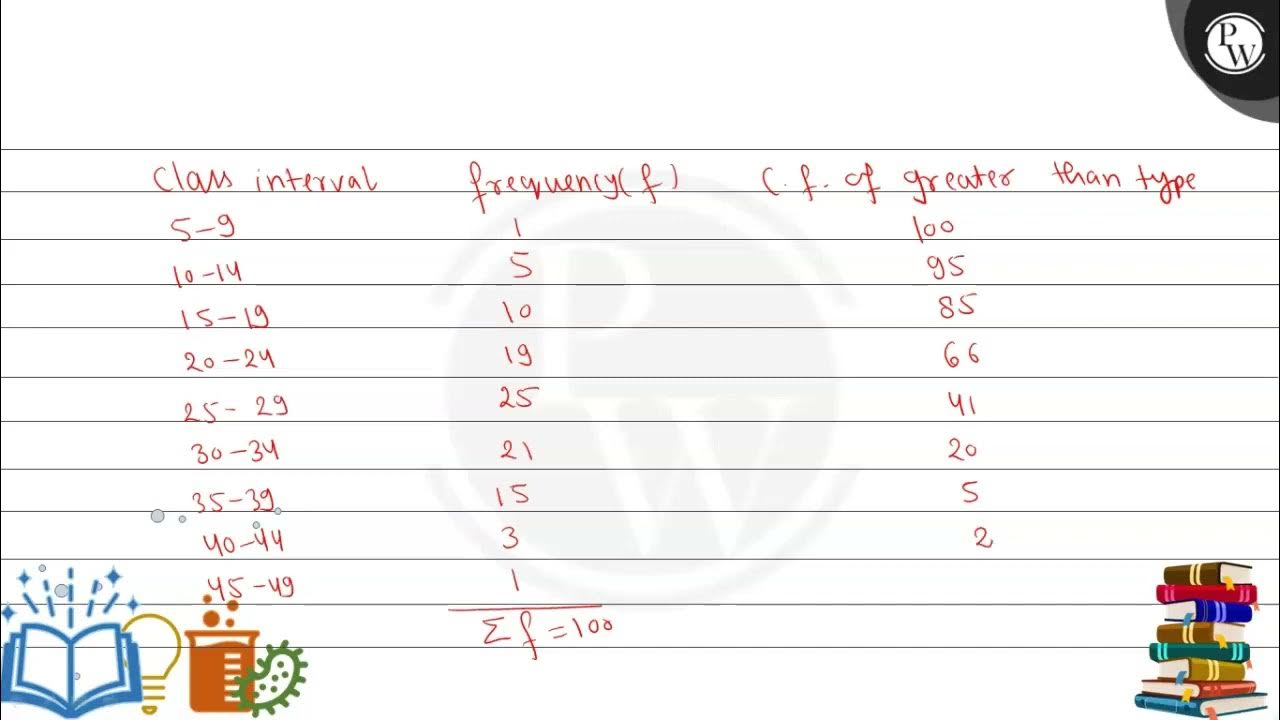 PW
Class interval frequency(f) C.f. of greater than type
5-9 1 100
10-14 5 95
15-19 10 85
20-24 19 66
25-29 25 41
30-34 21 20
35-39 15 5
40-44 3 2
45-49 1
Σf=100